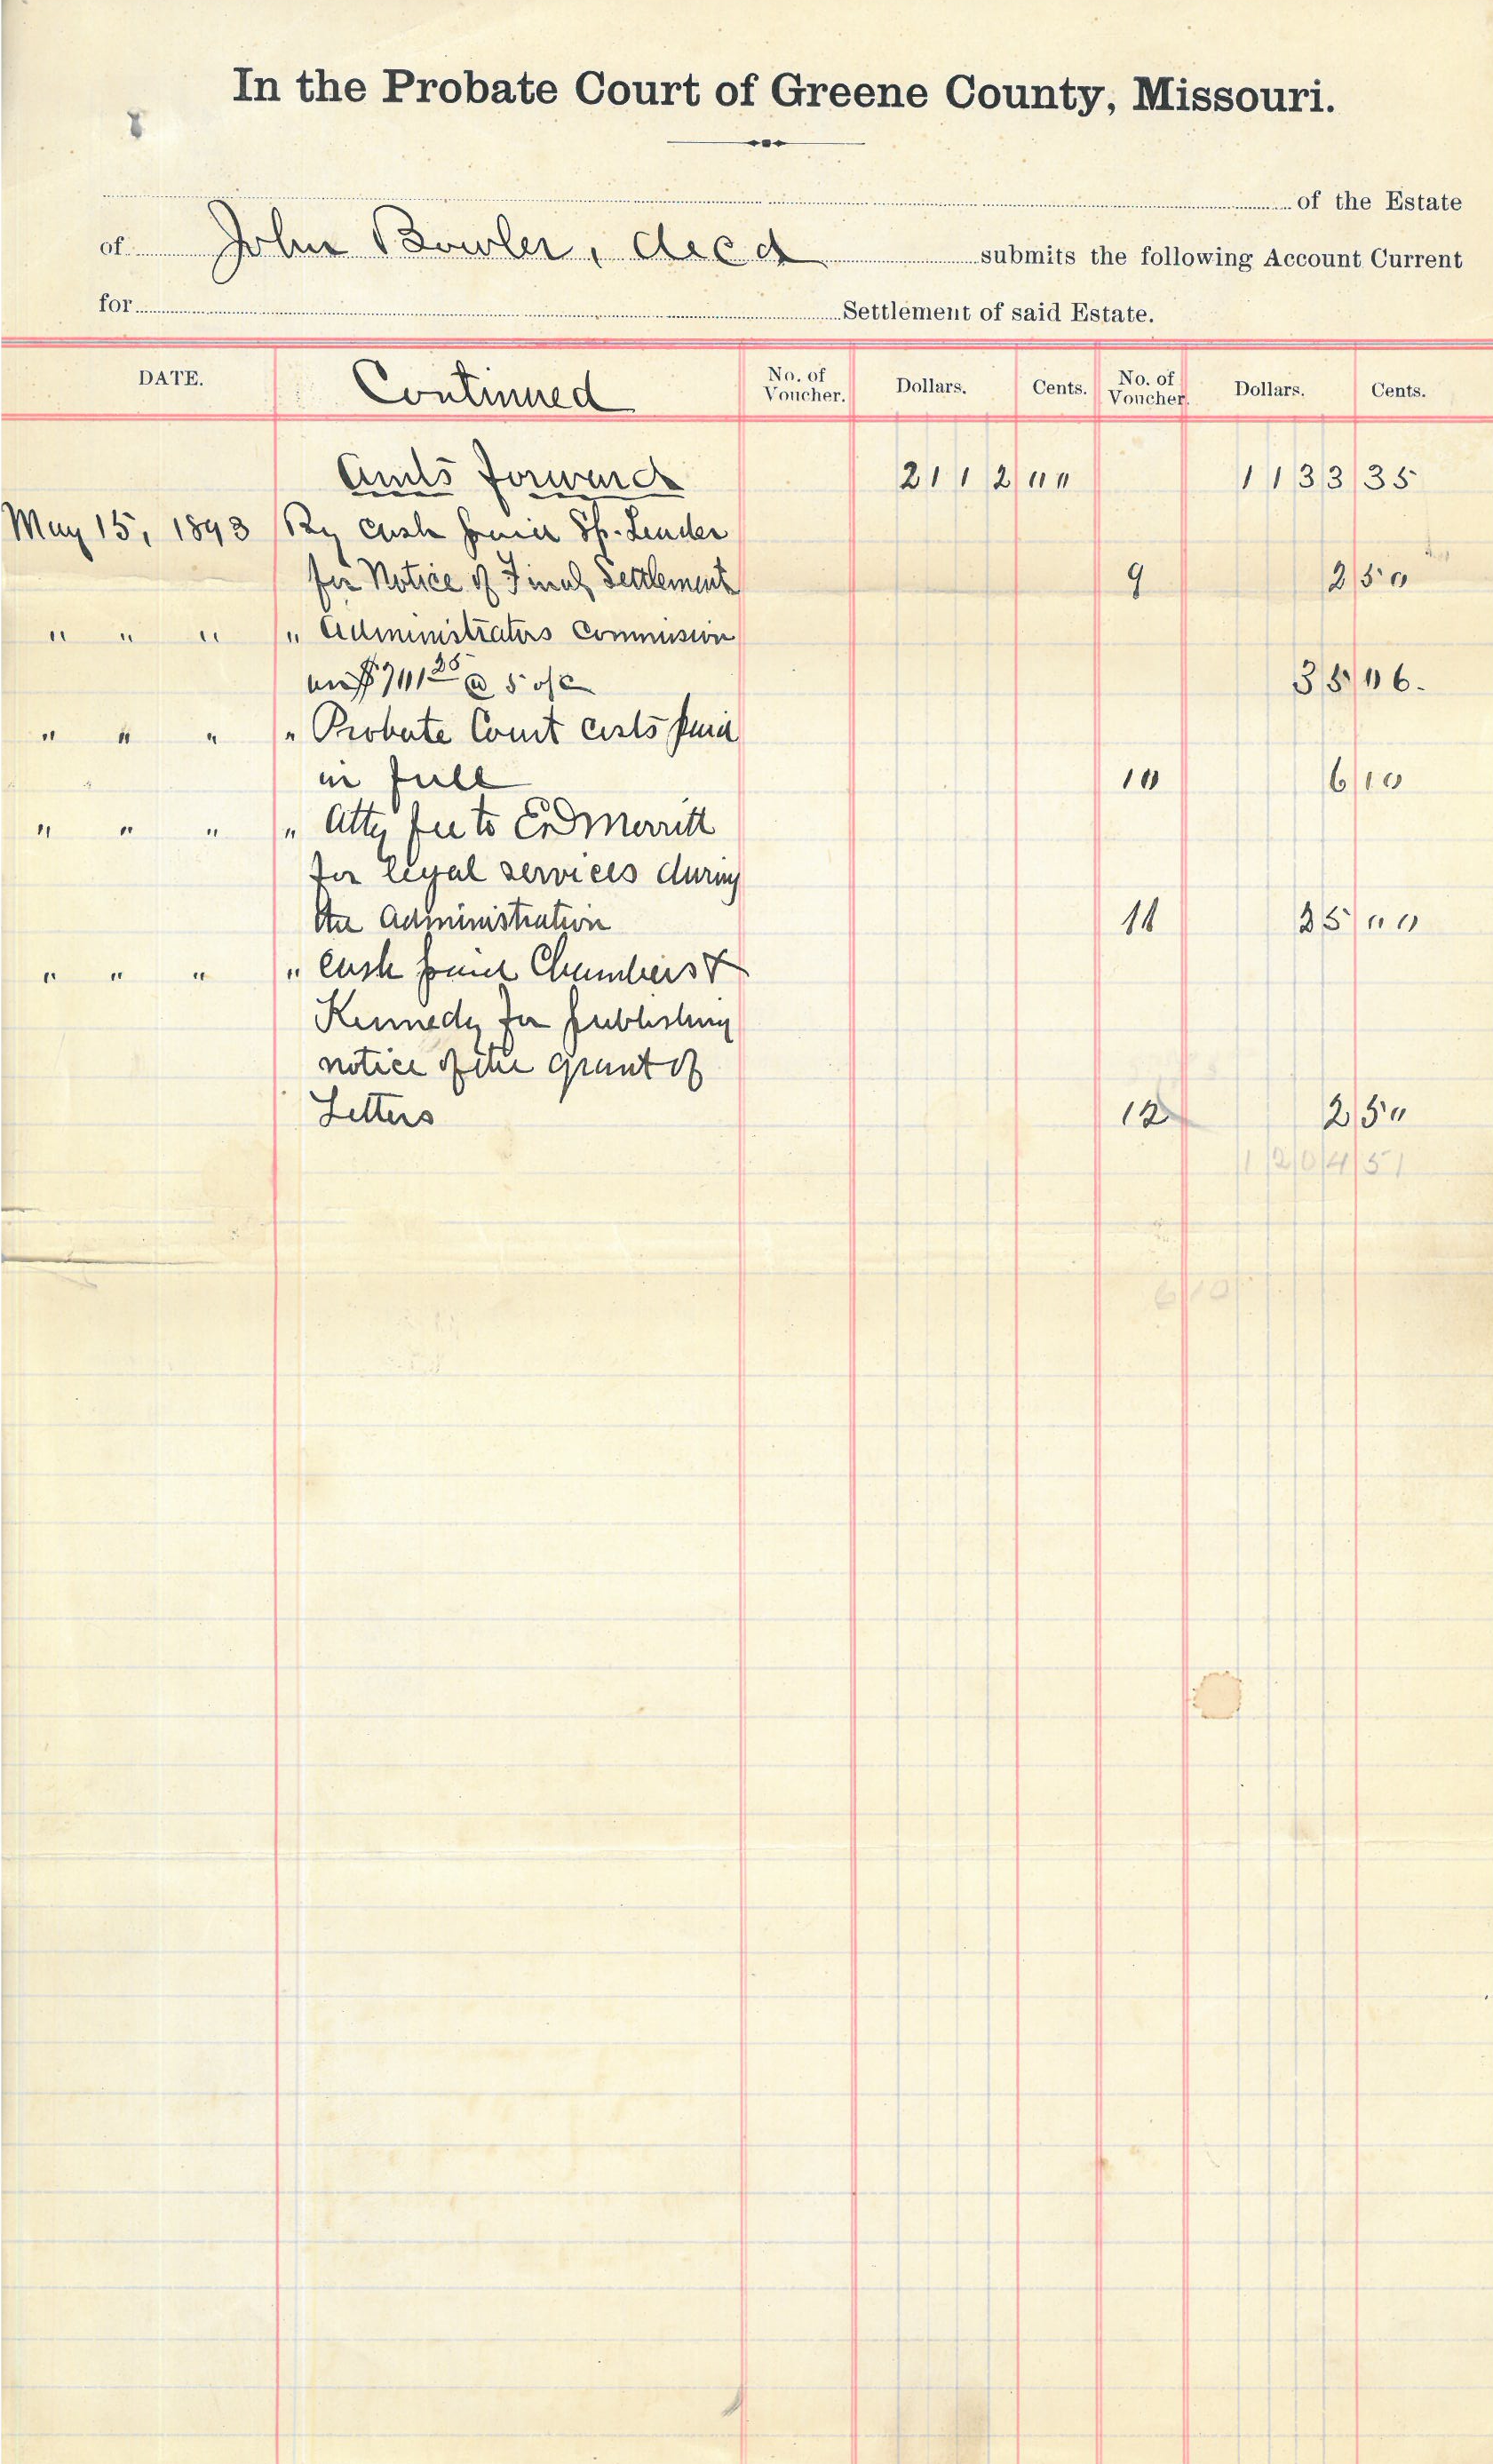 In the Probate Court of Greene County, Missouri.
of the Estate
of John Bowler, decd submits the following Account Current
for Settlement of said Estate.
DATE. Continued No. of Voucher. Dollars. Cents. No. of Voucher. Dollars. Cents.
Amts forward 2112 00 1133 35
May 15, 1893 By cash paid Sp. Leader
for Notice of Final Settlement 9 2 50
" " " " Administrators Commission
on $701 25 @ 5 o/c 35 06.
" " " " Probate Court costs paid
in full 10 6 10
" " " " Atty fee to ED Merritt
for legal services during
the administration 11 25 00
" " " " Cash paid Chambers &
Kennedy for publishing
notice of the grant of
Letters 12 2 50
1204 51
6 10